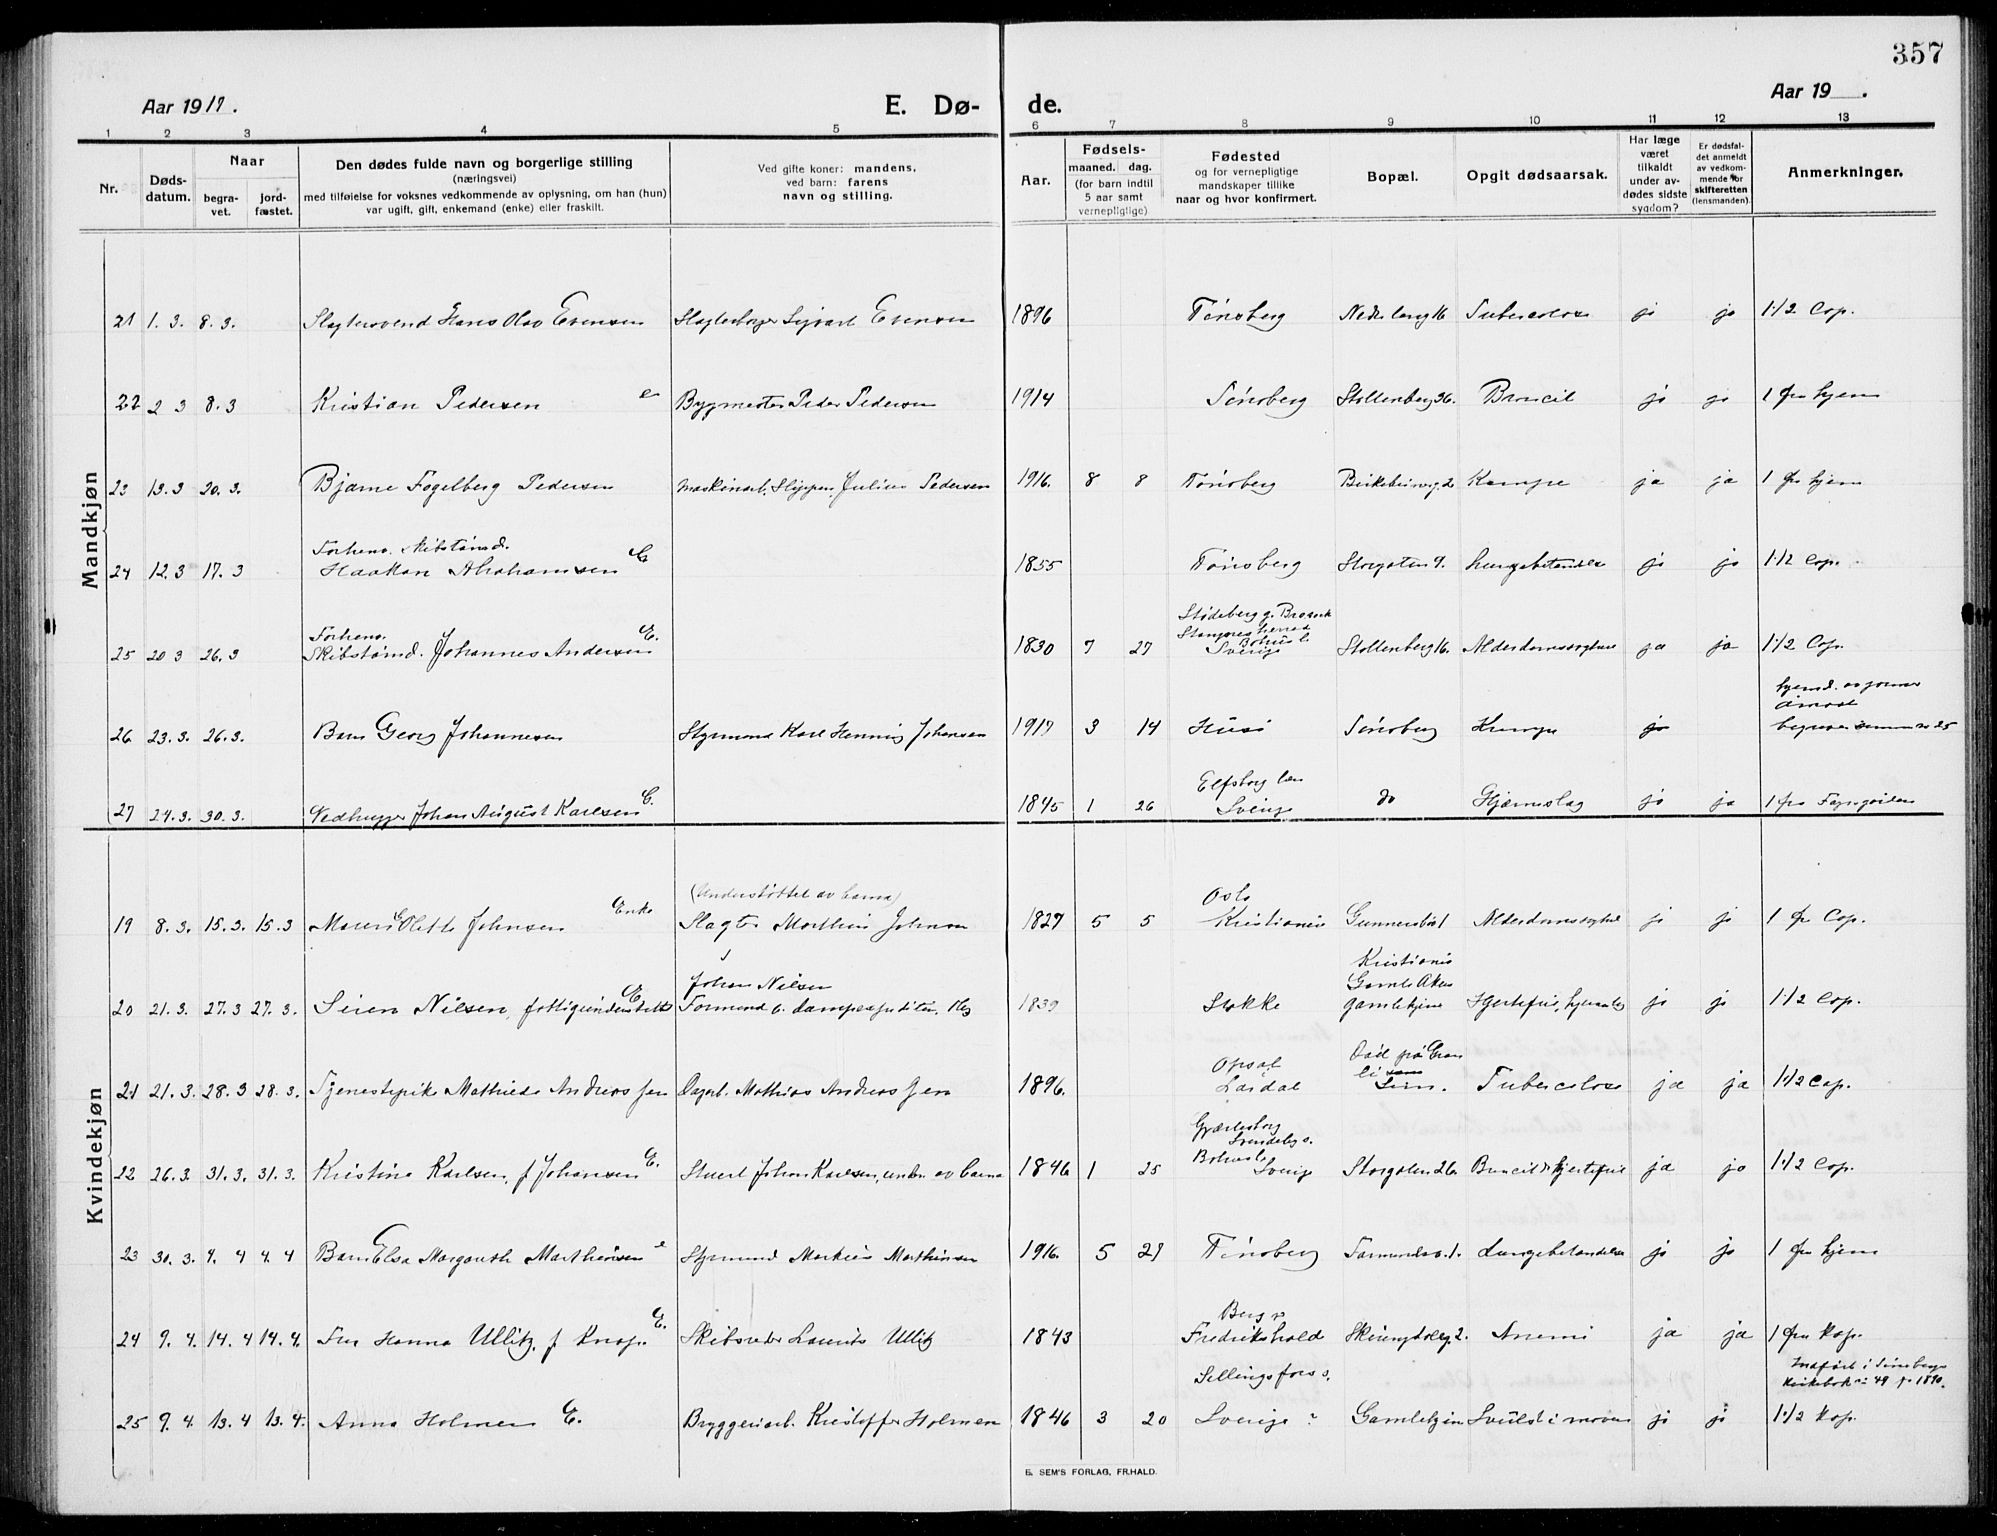 357
Aar 1917.
E. Dø-
de.
Aar 19 .
1 2 3 4 5 6 7 8 9 10 11 12 13
Nr.
Døds-
datum.
Naar
begra-
vet.
jord-
fæstet.
Den dødes fulde navn og borgerlige stilling
(næringsvei)
med tilføielse for voksnes vedkommende av oplysning, om han (hun)
var ugift, gift, enkemand (enke) eller fraskilt.
Ved gifte koner: mandens,
ved barn: farens
navn og stilling.
Aar.
Fødsels-
maaned. dag.
(for barn indtil
5 aar samt
vernepligtige)
Fødested
og for vernepligtige
mandskaper tillike
naar og hvor konfirmert.
Bopæl.
Opgit dødsaarsak.
Har læge
været
tilkaldt
under av-
dødes sidste
sygdom?
Er dødsfal-
det anmeldt
av vedkom-
mende for
skifteretten
(lensmanden).
Anmerkninger.
Mandkjøn
21 1. 3. 8. 3. Slagtersvend Hans Olav Evensen Slagterborger Sigvart Evensen 1896 Tønsberg Nedre Langg 16 Tuberculose ja ja 1 1/2 Cap.
22 2 3 8. 3 Kristian Pedersen e Bygmester Peder Pedersen 1914 Tønsberg Stoltenberg 36. Broncit ja ja 1 fra hjem
23 13. 3 20. 3. Bjarne Fogelberg Pedersen Maskinarb. Slippen, Julius Pedersen 1916. 8 8 Tønsberg Birkebeinerg. 2 Krampe ja ja 1 fra hjem
Forhenv. skibstømd.
24 12. 3 17. 3 Haakon Abrahamsen E 1855 Tønsberg Storgaten 9. Lungebetændelse ja ja 1 1/2 Cap.
Forhenv.
25 20 3 26. 3 Skibstømd. Johannes Andersen E. 1830 7 27 Bohus l. Sverige Stoltenberg 16. Alderdomssvaghet ja ja 1 1/2 Cap.
26 23. 3. 26. 3. Barn Georg Johannesen Styrmand Karl Henning Johansen 1917 3 14 Husø Tønsberg Krampe ja
27 24. 3. 30. 3. Vedhugger Johan August Karlsen E. 1845 1 26 Elfsborg len Sverige do Hjerneslag ja ja 1 fra
Kvindekjøn
(Understøttet av barna)
19 8. 3. 15. 3. 15. 3 Maren Olette Johnsen Enke Slagter Marthin Johnsen 1827 5 5 Oslo Kristiania Gunnarsbø 1 Alderdomssvaghet ja ja 1 fra Cap.
Johan Nilsen
20 21. 3. 27. 3 27. 3. Seren Nilsen, fattigunderstøttet E Formand v. dampexpedition, Kra 1839 Stokke Kristiania Gamle Aker Gamlehjem Hjertefeil, hjerneslag ja ja 1 1/2 Cap.
21 21. 3. 28. 3 28. 3. Tjenestepike Mathilde Andreassen Dagarb. Mathias Andreassen 1896. Opsal Lardal Sem. Tuberculose ja ja 1 1/2 Cap.
22 26. 3 31. 3. 31. 3. Kristine Karlsen, f Johansen E. Stuert Johan Karlsen, underst. av barna 1846 1 25 Bohus l. Sverige Storgaten 26. Broncit & hjertefeil ja ja 1 1/2 Cap.
23 30. 3. 4. 4 4. 4 Barn Elsa Margareth Marthinsen e Styrmand Markus Marthinsen 1916. 5 29 Tønsberg Farmandsv. 1. Lungebetændelse ja ja 1 fra hjem
24 9. 4. 14. 4 14. 4. Fru Hanna Ullitz, f Knap. E. Skibsreder Laurits Ullitz 1843 Berg v. Fredrikshald 2. Anemi ja ja 1 fra Kap.
Indført i Tønsbergs
Kirkebok nr 49 for 1890.
25 9. 4. 13. 4 13. 4. Anna Holmen E. Bryggeriarb. Kristoffer Holmen 1846 3 20 Sellingsfors s. Sverige ? Gamlehjem Svulst i maven ja ja 1 1/2 Kap.
E. SEM'S FORLAG, FR.HALD.